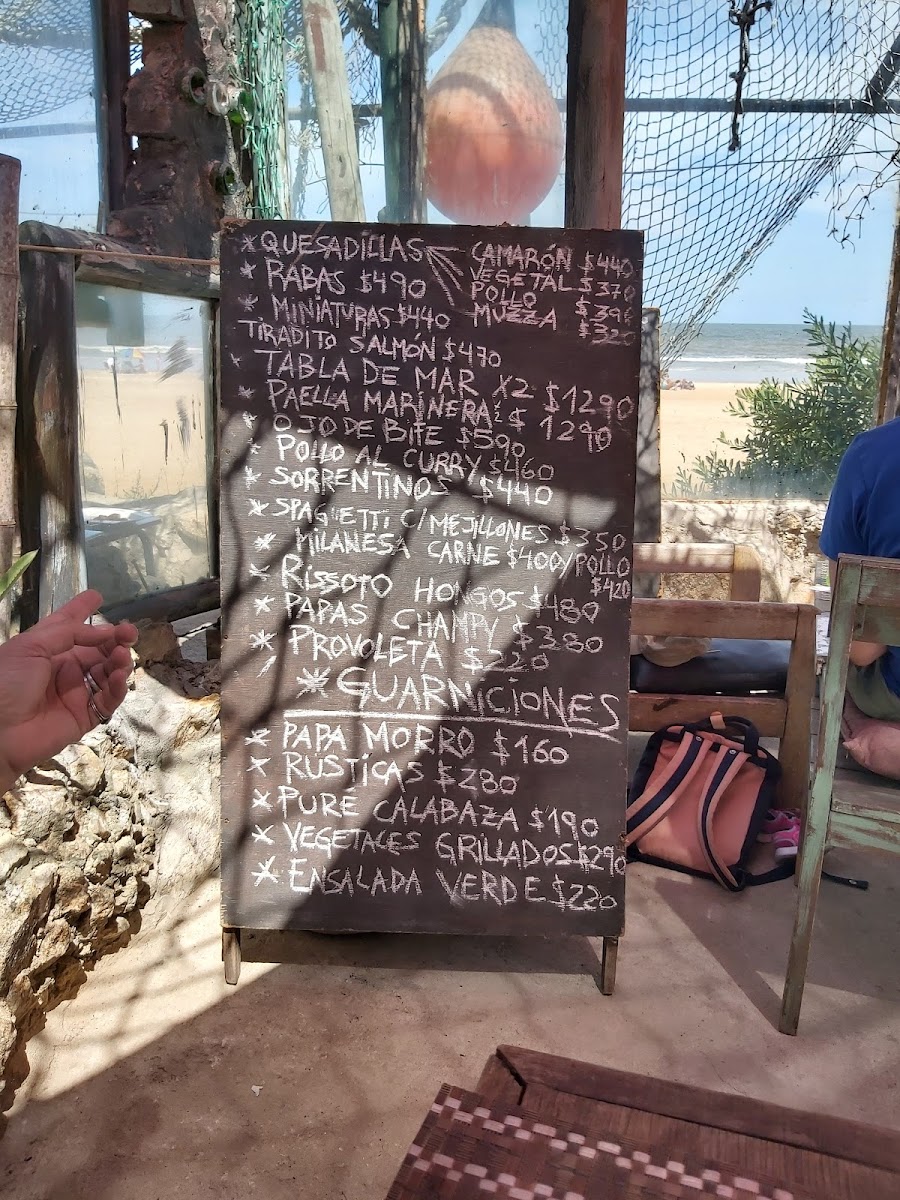 * QUESADILLAS CAMARÓN $440
VEGETAL $370
POLLO $390
MUZZA $320
* RABAS $490
* MINIATURAS $440
TIRADITO SALMÓN $470
* TABLA DE MAR X2 $1290
* PAELLA MARINERA X2 $1290
* OJO DE BIFE $590
* POLLO AL CURRY $460
* SORRENTINOS $440
* SPAGUETTI C/MEJILLONES $350
* MILANESA CARNE $400/POLLO $420
* RISSOTO HONGOS $480
* PAPAS CHAMPY $380
* PROVOLETA $220
* GUARNICIONES
* PAPA MORRO $160
* RUSTICAS $280
* PURÉ CALABAZA $190
* VEGETALES GRILLADOS $290
* ENSALADA VERDE $220